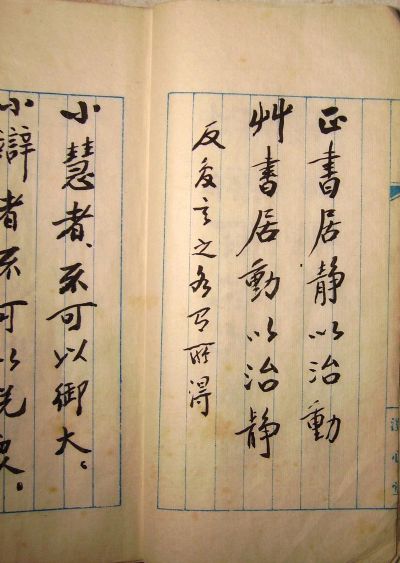 正書居静以治動
艸書居動以治静
反复言之各有所得
小慧者、不可以御大。
小辯者不可以説衆。